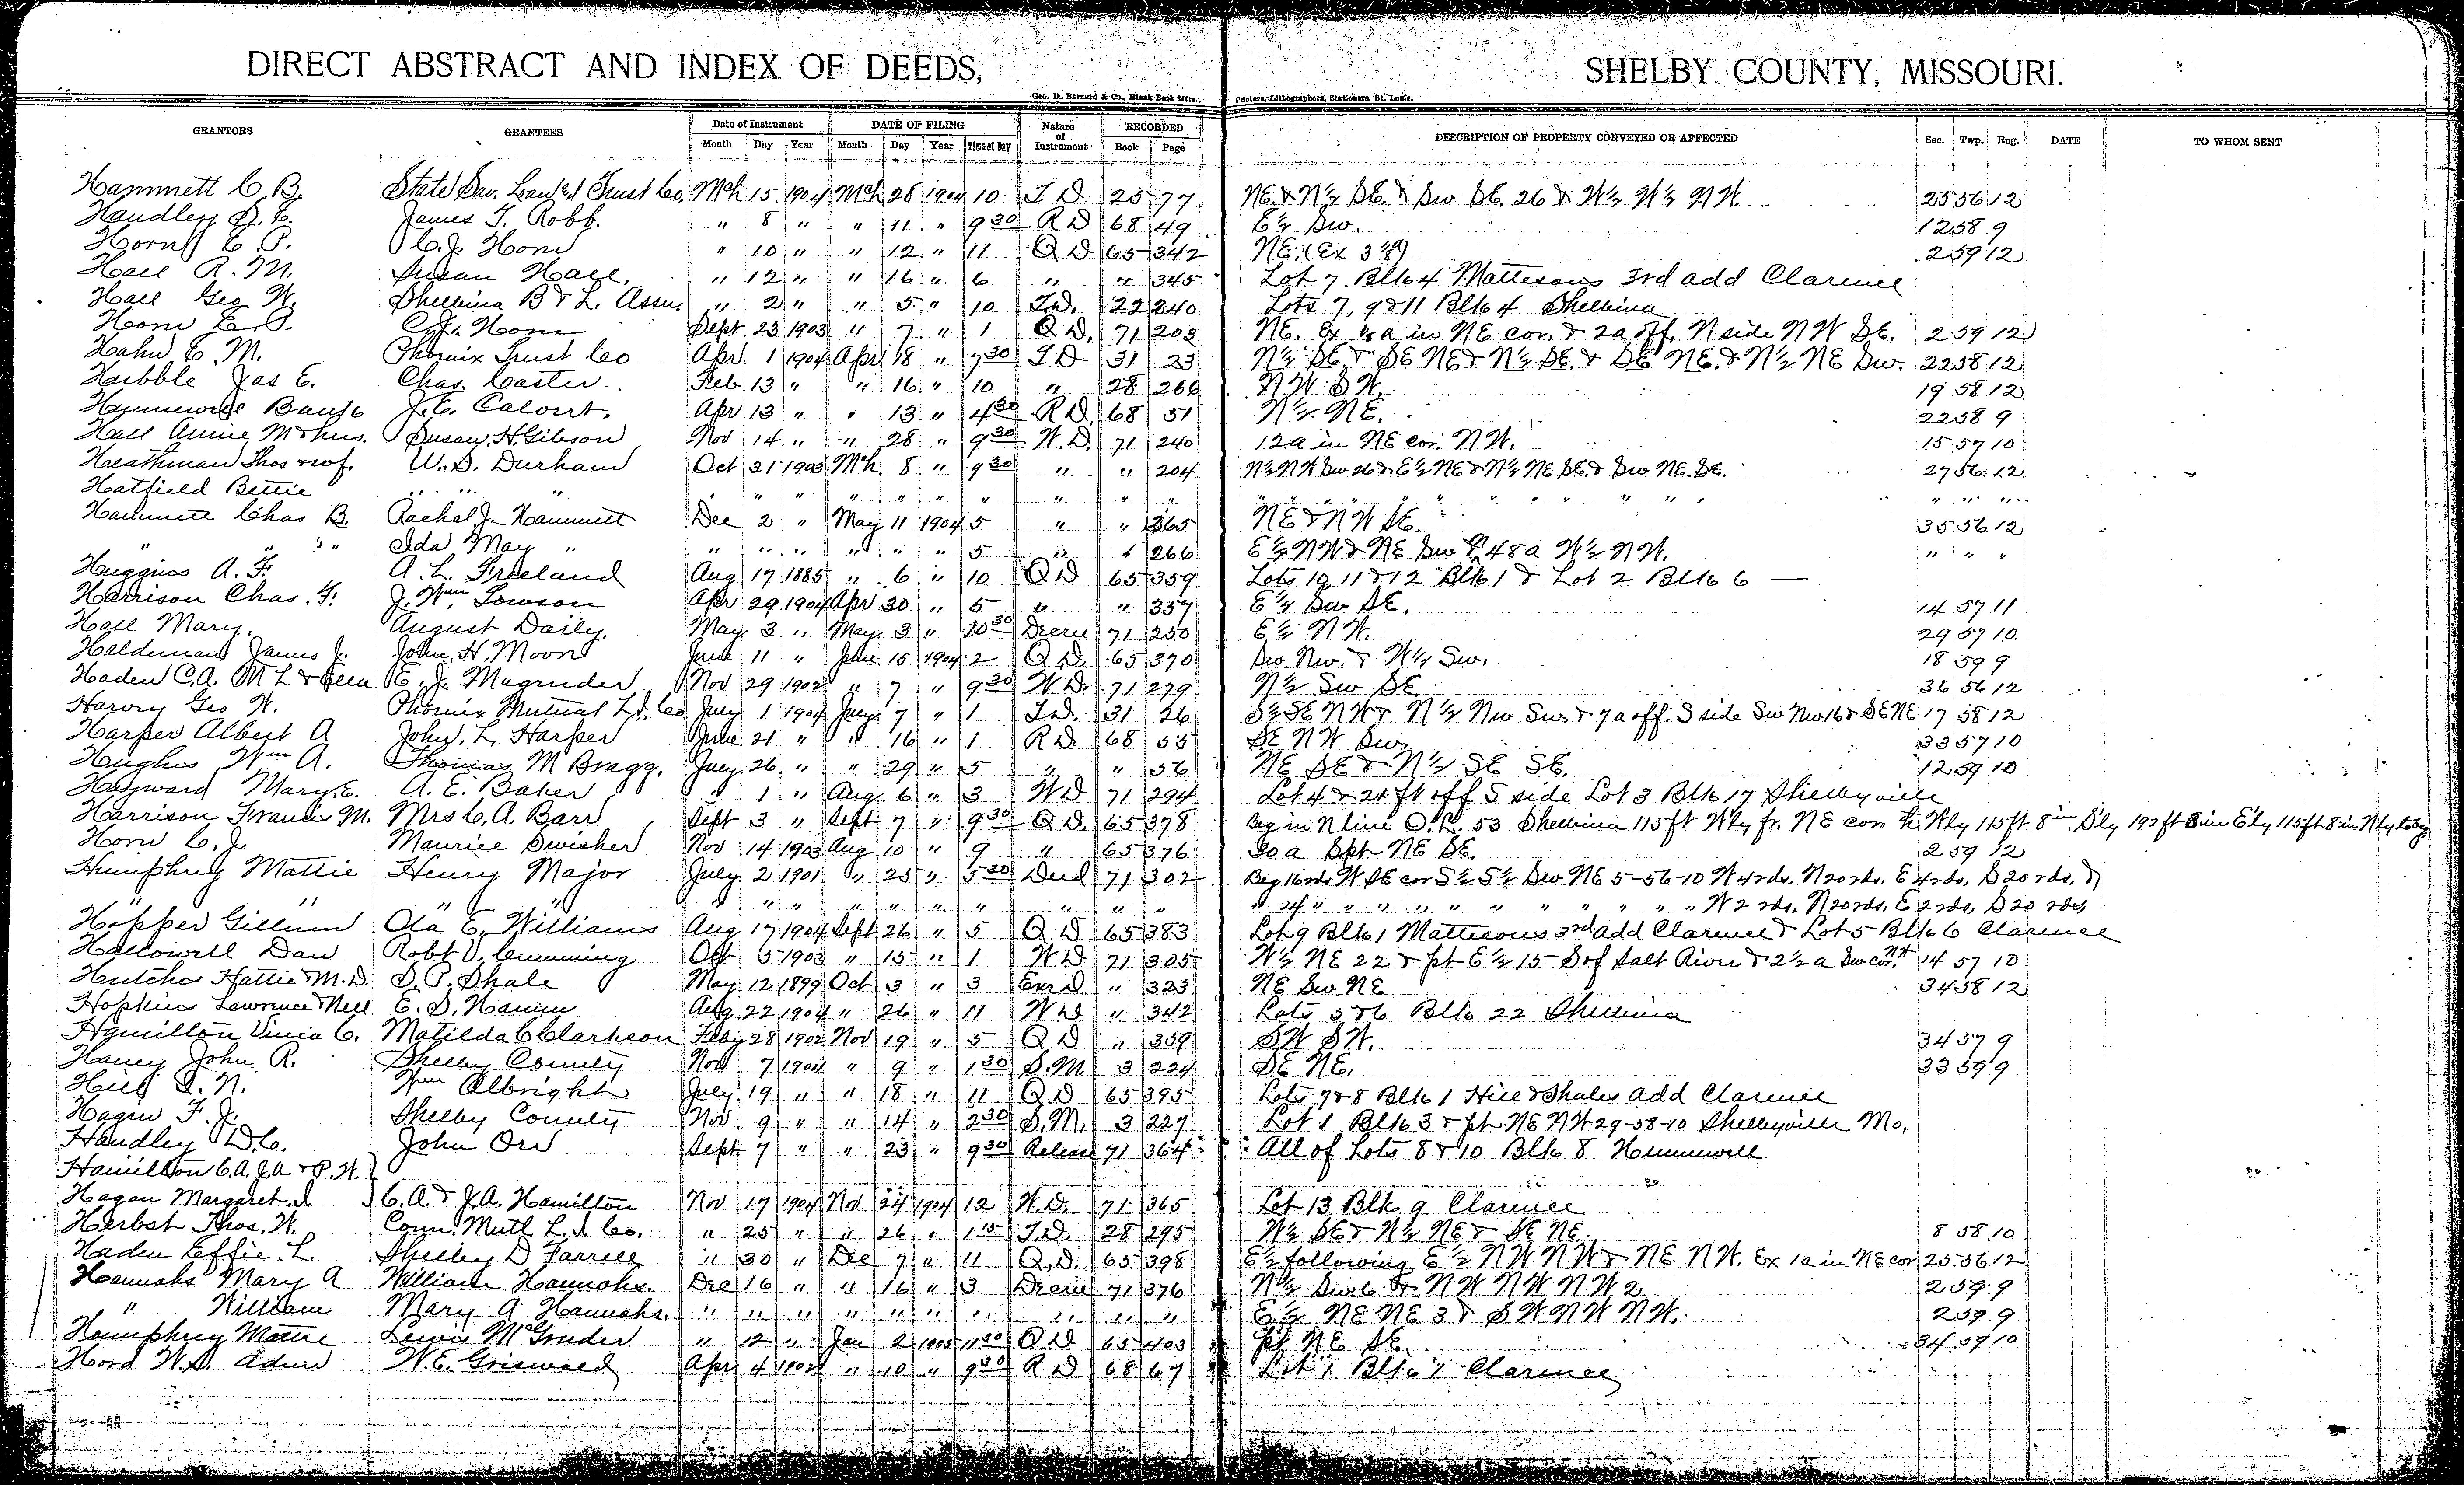 DIRECT ABSTRACT AND INDEX OF DEEDS, SHELBY COUNTY, MISSOURI.
Geo. D. Barnard & Co., Blank Book Mfrs., Printers, Lithographers, Stationers, St. Louis.
GRANTORS GRANTEES Date of Instrument DATE OF FILING Nature of Instrument RECORDED DESCRIPTION OF PROPERTY CONVEYED OR AFFECTED Sec. Twp. Rng. DATE TO WHOM SENT
Month Day Year Month Day Year Time of Day Book Page
Hammett C. B. State Sav. Loan & Trust Co. Mch 15 1904 Mch 28 1904 10 T D 25 77 NE. & N½ SE. & Sw SE. 26 & W½ W½ NW. 25 56 12
Handley James T. Robb. " 8 " " 11 " 9 30 R D 68 49 E½ Sw. 12 58 9
Horn E. P. C. J. Horn " 10 " " 12 " 11 Q D 65 342 NE. (Ex 2 59 12
Hall R. M. Susan Hall. " 12 " " 16 " 6 " " 345 Lot 7 Blk 4 Mattesons 3rd add Clarence
Hall Geo W. Shelbina B & L. Assn. " 2 " " 5 " 10 T.D. 22 240 Lots 7, 9 & 11 Blk 4 Shelbina
Horn E. P. C. J. Horn Sept 23 1903 " 7 " 1 Q D. 71 203 NE. Ex a in NE cor. & 2a off. N side NW SE. 2 59 12
Hahn E. M. Phoenix Trust Co Apr 1 1904 Apr 18 " 7 30 T D 31 23 N½ SE. & SE NE & N½ SE. & SE NE. & N½ NE Sw. 22 58 12
Hubble Jas E. Chas. Caster Feb 13 " " 16 " 10 " 28 266 NW. SW. 19 58 12
Hunnewell Bank J. E. Calvert. Apr 13 " " 13 " 4 30 R D. 68 51 N½ NE. 22 58 9
Hall Annie M & hus. Susan H. Gibson Nov 14 " " 28 " 9 30 W. D. 71 240 12a in NE cor. NW. 15 57 10
Heathman Thos & wf. W. S. Durham Oct 31 1903 Mch 8 " 9 30 " " 204 N½ NW Sw 26 & E½ NE & N½ NE SE. & Sw NE. SE. 27 56 12
Hatfield Bettie " " " " " " " " " " " " " " " "
Hammett Chas B. Rachel J. Hammett Dec 2 " May 11 1904 5 " " 265 NE & NW SE. 35 56 12
" " " Ida May " " " " " " " 5 " " 266 E½ NW & NE Sw & 48a W½ NW. " " "
Huggins A. F. A. L. Freeland Aug 17 1885 " 6 " 10 Q D 65 359 Lots 10, 11 & 12 Blk 1 & Lot 2 Blk 6 —
Harrison Chas. F. J. Wm. Lowson Apr 29 1904 Apr 30 " 5 " " 357 E½ Sw SE. 14 57 11
Hall Mary. August Daily. May 3 " May 3 " 10 30 Decree 71 250 E½ NW. 29 57 10
Haldeman James J. John H. Moon June 11 " June 15 1904 2 Q D. 65 370 Sw Nw. & W½ Sw. 18 59 9
Haden C. A. M L & E. J. Magruder Nov 29 1902 " 7 " 9 30 W D. 71 279 N½ Sw SE 36 56 12
Harvey Geo W. Phoenix Mutual L. I. Co July 1 1904 July 7 " 1 T.D. 31 26 S½ SE NW & N½ Nw Sw. & 7a off. S side Sw Nw 16 & SE NE 17 58 12
Harper Albert A John. L. Harper June 21 " " 16 " 1 R D. 68 55 SE NW Sw. 33 57 10
Hughes Wm A. Thomas M Bragg. July 26 " " 29 " 5 " " 56 NE SE & N½ SE SE. 12 59 10
Hayward Mary E. A. E. Baker " 1 " Aug. 6 " 3 W D 71 294 Lot 4 & 21 ft off S side Lot 3 Blk 17 Shelbyville
Harrison Francis M. Mrs C. A. Barr Sept 3 " Sept 7 " 9 30 Q D. 65 378 Beg in N line O. L. 53 Shelbina 115 ft Wly fr. NE cor th Wly 115 ft 8 in Sly 192 ft 8 in Ely 115 ft 8 in Nly to beg
Horn C. J. Maurice Swisher Nov 14 1903 Aug 10 " 9 " 65 376 30a Spt NE SE. 2 59 12
Humphrey Mattie Henry Major July 2 1901 " 25 " 5 30 Deed 71 302 Beg 16 rds. W SE cor S½ S½ Sw NE 5-56-10 W 4 rds. N 20 rds. E 4 rds. S 20 rds. &
" " " " " " " " " " " " " " " " " " " W 2 rds. N 20 rds. E 2 rds. S 20 rds
Hopper Gillum Ola E. Williams Aug 17 1904 Sept 26 " 5 Q D 65 383 Lot 9 Blk 1 Mattesons 3rd add Clarence & Lot 5 Blk 6 Clarence
Hallowell Dan Robt V. Cumming Oct 5 1903 " 15 " 1 W D 71 305 W½ NE 22 & pt E½ 15 S of Salt River & 2½ a Sw cor. 14 57 10
Hutcher Hattie M. D. S. P. Shale May 12 1899 Oct 3 " 3 " 323 NE Sw NE 34 58 12
Hopkins Lawrence & Nell E. S. Hamm Aug 22 1904 " 26 " 11 W D " 342 Lots 5 & 6 Blk 22 Shelbina
Hamilton Vinia C. Matilda C Clarkson Feby 28 1902 Nov 19 " 5 Q D " 359 SW SW. 34 57 9
Haney John R. Shelby County Nov 7 1904 " 9 " 1 30 S. M. 3 224 SE NE. 33 59 9
Hill Wm Albright July 19 " " 18 " 11 Q D 65 395 Lots 7 & 8 Blk 1 Hill & Shales add Clarence
Hagin F. J. Shelby County Nov 9 " " 14 " 2 30 S. M. 3 227 Lot 1 Blk 3 & pt NE NW 29-58-10 Shelbyville Mo.
Handley D. C. John Orr Sept 7 " " 23 " 9 30 Release 71 364 All of Lots 8 & 10 Blk 8 Hunnewell
Hamilton C. A. J. A. & P. W.
Hagan Margaret C. A. & J. A. Hamilton Nov 17 1904 Nov 24 1904 12 W. D. 71 365 Lot 13 Blk 9 Clarence
Herbst Thos. W. Conn. Mutl L. I. Co. " 25 " " 26 " 1 15 T. D. 28 295 W½ SE & W½ NE & SE NE 8 58 10
Haden Effie L. Shelby D Farrell " 30 " Dec 7 " 11 Q. D. 65 398 E½ following E½ NW NW & NE NW. Ex 1a in NE cor 25 56 12
Hannahs Mary A William Hannahs. Dec 16 " " 16 " 3 Decree 71 376 N½ Sw 6 & NW NW NW 2 2 59 9
" William Mary A Hannahs. " " " " " " " " " " E½ NE NE 3 & SW NW NW. 2 59 9
Humphrey Mattie Lewis McGruder " 12 " Jan 2 1905 11 30 Q D 65 403 pt NE SE. 34 59 10
Hord W. S. Admr W. E. Griswold Apr 4 1902 " 10 " 9 30 R D 68 67 Lot 1 Blk 1 Clarence